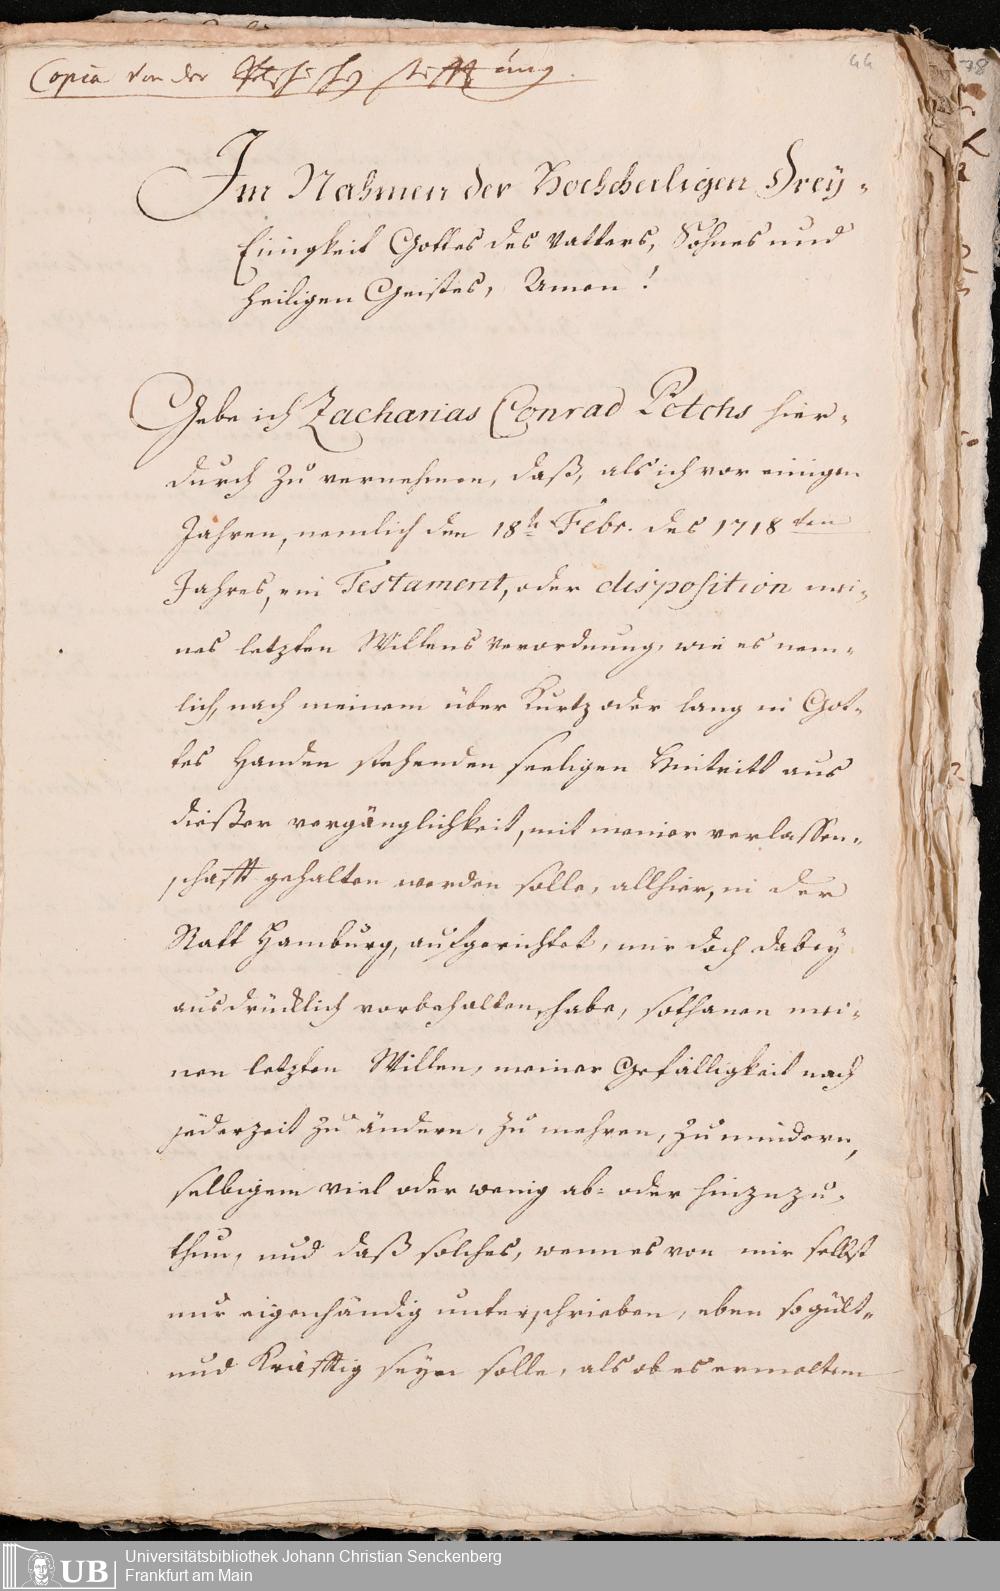 Copia von der Petschischen Stifftung.
44
78
Im Nahmen der Hochheiligen Drey-
Einigkeit Gottes des Vatters, Sohnes und
heiligen Geistes, Amen!
Gebe ich Zacharias Conrad Petchs hier-
durch zu vernehmen, daß, als ich vor einigen
Jahren, nemlich den 18t Febr. des 1718ten
Jahres, ein Testament, oder disposition mei-
nes letzten Willens verordnung, wie es nem-
lich, nach meinem über Kurtz oder lang in Got-
tes Handen stehenden seeligen Hintritt aus
dießer vergänglichkeit, mit meiner verlassen-
schafft gehalten werden solle, allhier, in der
Statt Hamburg, aufgerichtet, mir doch dabey
ausdrücklich vorbehalten habe, sothanen mei-
nen letzten Willen, meiner Gefälligkeit nach
jederzeit zu ändern, zu mehren, zu mindern,
selbigem viel oder wenig ab- oder hinzuzu-
thun, und daß solches, wenn es von mir selbst
nur eigenhändig unterschrieben, eben so gült-
und Kräfftig seyn solle, als ob es ermeltem
UB
Universitätsbibliothek Johann Christian Senckenberg
Frankfurt am Main